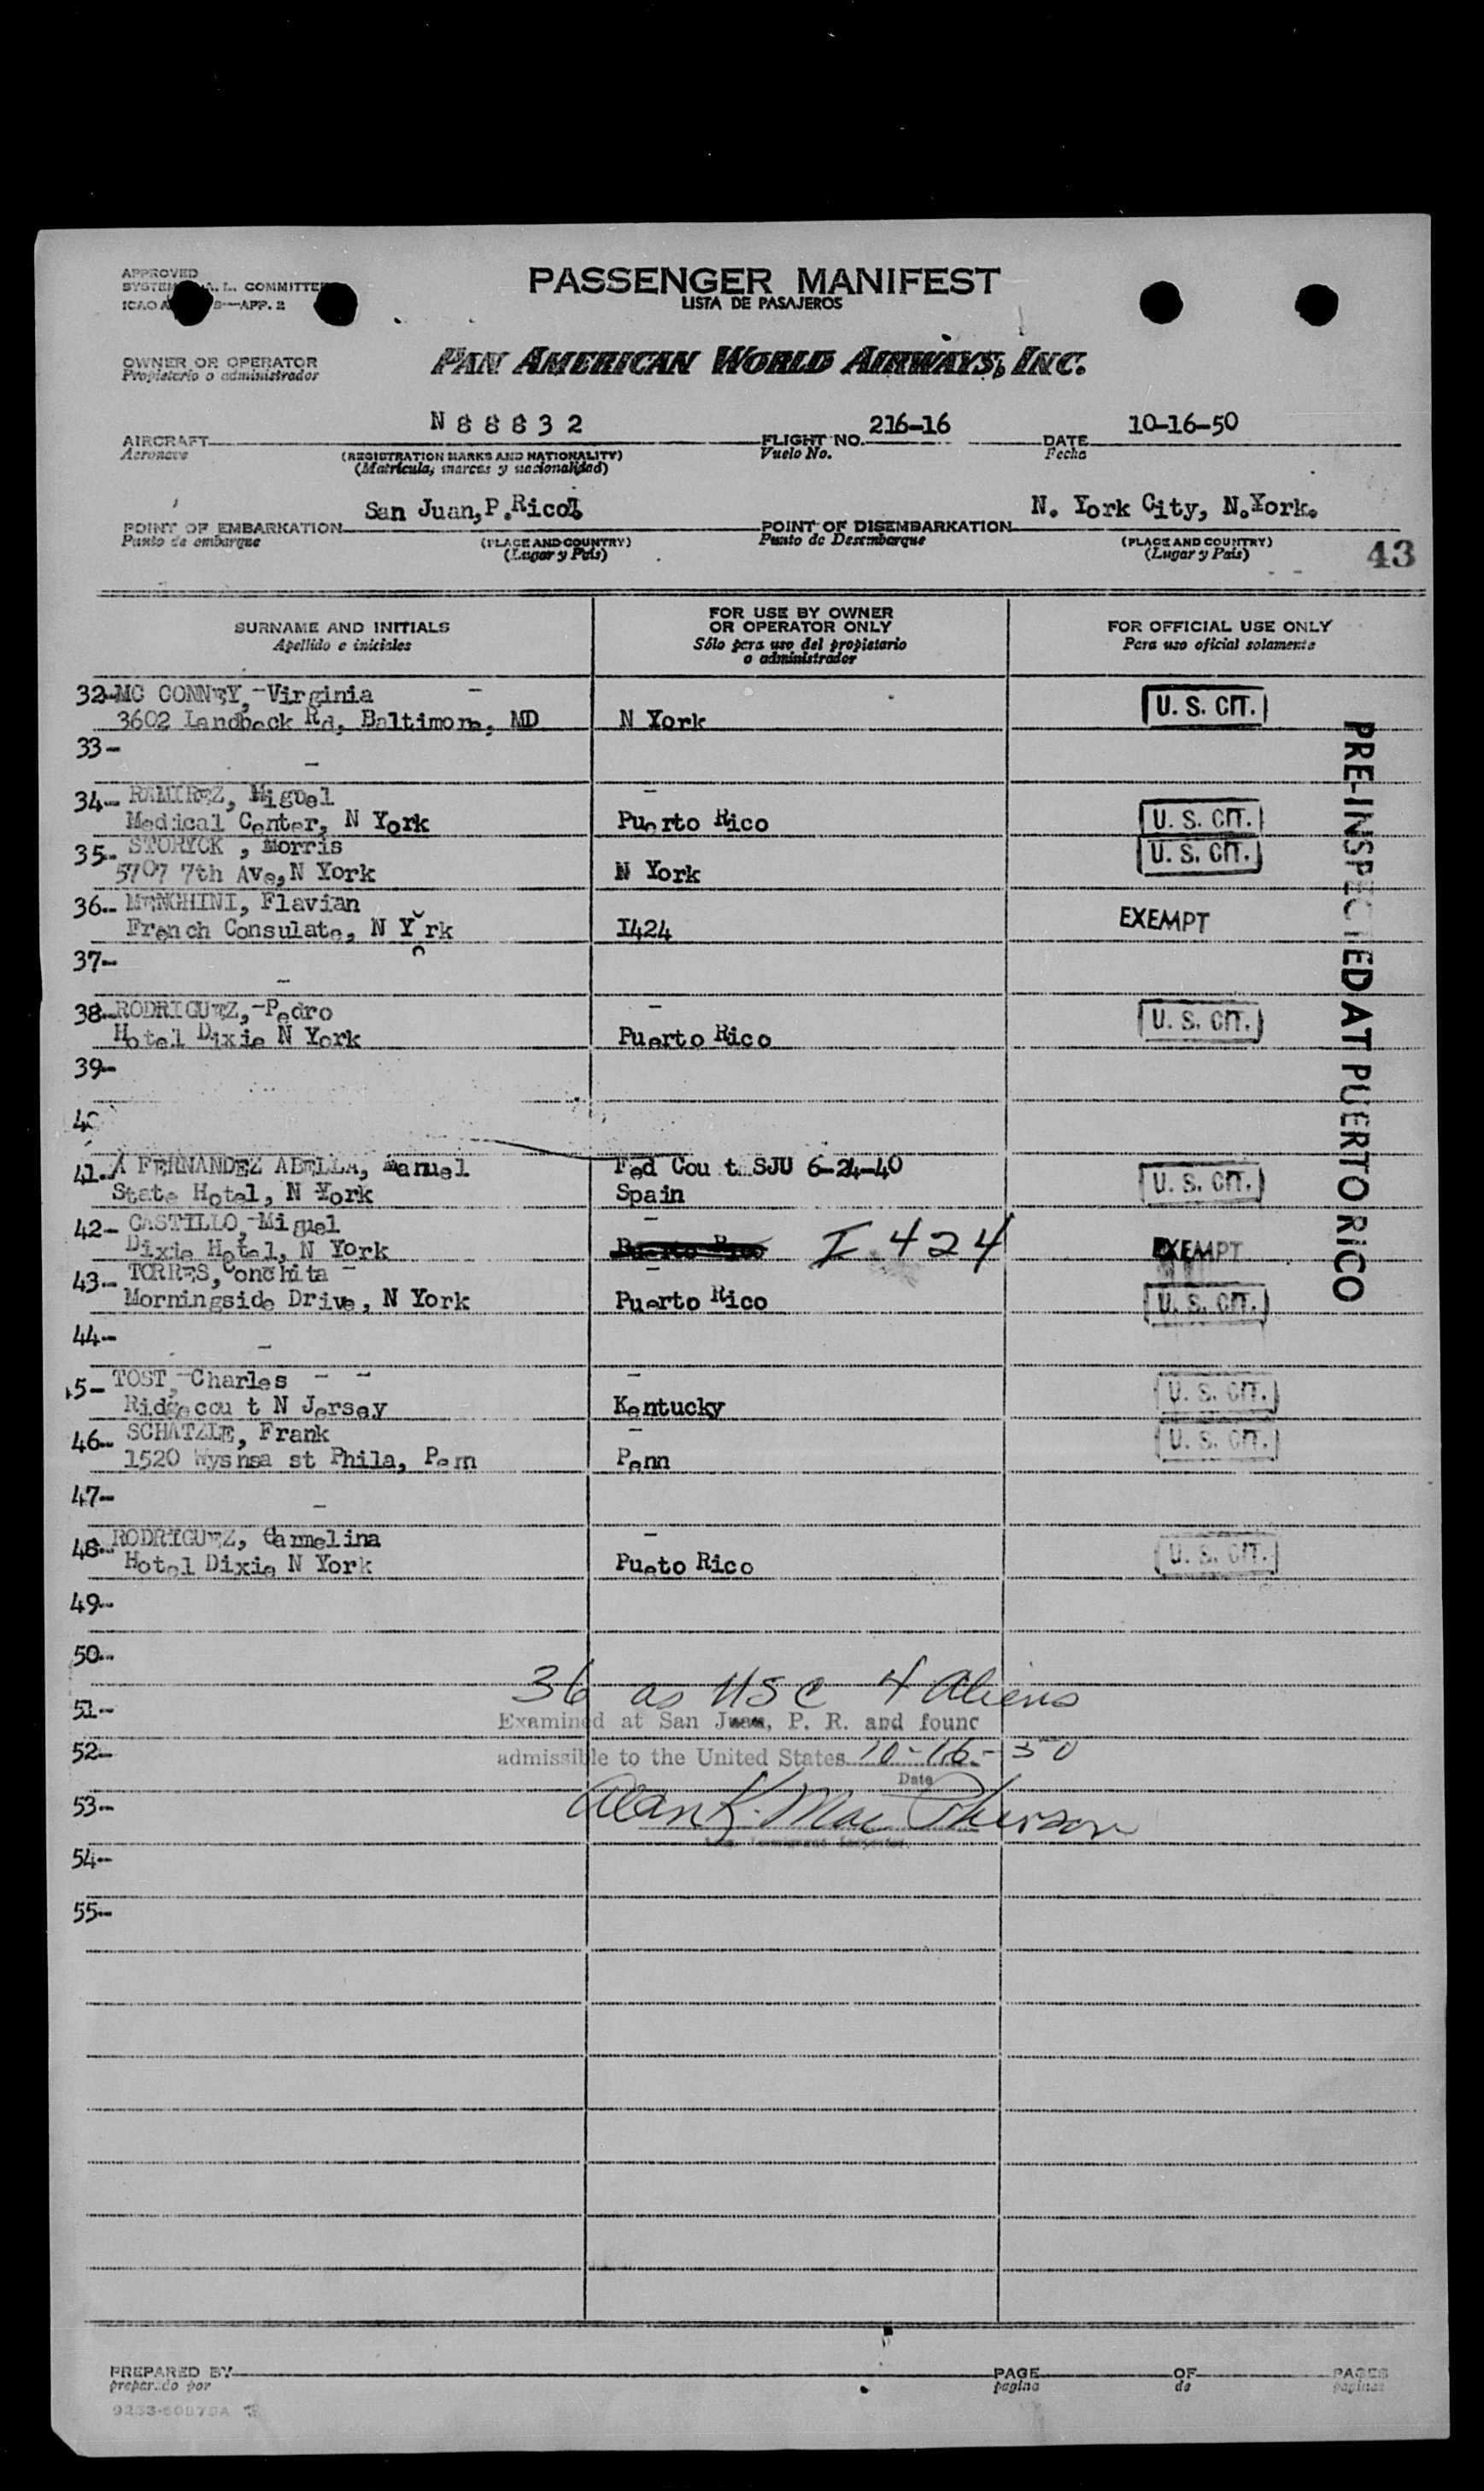 APPROVED
SYSTEM A. L. COMMITTEE
ICAO A 9—APP. 2
PASSENGER MANIFEST
LISTA DE PASAJEROS
OWNER OR OPERATOR
Propietario o administrador
PAN AMERICAN WORLD AIRWAYS, INC.
AIRCRAFT N 8 8 8 3 2 FLIGHT NO. 216-16 DATE 10-16-50
Aeronave (REGISTRATION MARKS AND NATIONALITY) Vuelo No. Fecha
(Matrícula, marcas y nacionalidad)
POINT OF EMBARKATION San Juan, P. Rico POINT OF DISEMBARKATION N. York City, N. York.
Punto de embarque (PLACE AND COUNTRY) Punto de Desembarque (PLACE AND COUNTRY)
(Lugar y País) (Lugar y País) 43
SURNAME AND INITIALS FOR USE BY OWNER OR OPERATOR ONLY FOR OFFICIAL USE ONLY
Apellido e iniciales Sólo para uso del propietario o administrador Para uso oficial solamente
32- MC CONNEY,-Virginia - U. S. CIT.
3602 Landbeck Rd, Baltimore, MD N York
33-
34- RAMIREZ, Miguel -
Medical Center, N York Puerto Rico U. S. CIT.
35- STORYCK , Morris U. S. CIT.
5707 7th Ave, N York N York
36- MENGHINI, Flavian EXEMPT
French Consulate, N York I424
37-
38- RODRIGUEZ,-Pedro - U. S. CIT.
Hotel Dixie N York Puerto Rico
39-
40
41- X FERNANDEZ ABELLA, Manuel Fed Cou t SJU 6-24-40
State Hotel, N York Spain U. S. CIT.
42- CASTILLO,-Miguel -
Dixie Hotel, N York Puerto Rico I 424 EXEMPT
43- TORRES, Conchita - -
Morningside Drive, N York Puerto Rico U. S. CIT.
44-
5- TOST,-Charles - - - U. S. CIT.
Ridgecou t N Jersey Kentucky
46- SCHATZLE, Frank - U. S. CIT.
1520 Wysnsa st Phila, Penn Penn
47-
48- RODRIGUEZ, Carmelina - U. S. CIT.
Hotel Dixie N York Pueto Rico
49-
50-
36 as USC 4 Aliens
51-
Examined at San Juan, P. R. and found
52-
admissible to the United States 10-16-50
Date
53-
Alan K. MacPherson
Immigrant Inspector.
54-
55-
PRE-INSPECTED AT PUERTO RICO
PREPARED BY PAGE OF PAGES
preparado por pagina de paginas